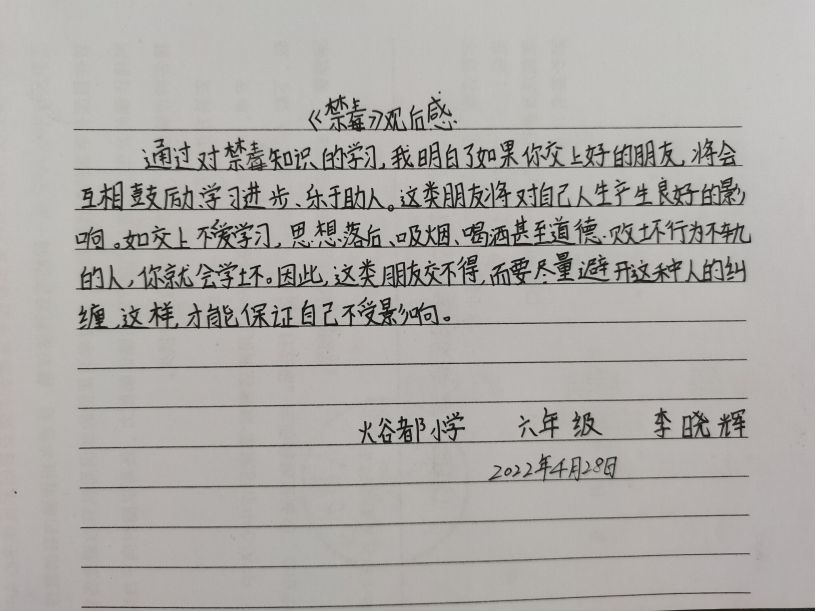 《禁毒》观后感
通过对禁毒知识的学习,我明白了如果你交上好的朋友,将会
互相鼓励、学习进步、乐于助人。这类朋友将对自己人生产生良好的影
响。如交上不爱学习,思想落后、吸烟、喝酒甚至道德败坏行为不轨
的人,你就会学坏。因此,这类朋友交不得,而要尽量避开这种人的纠
缠,这样,才能保证自己不受影响。
火谷都小学 六年级 李晓辉
2022年4月28日